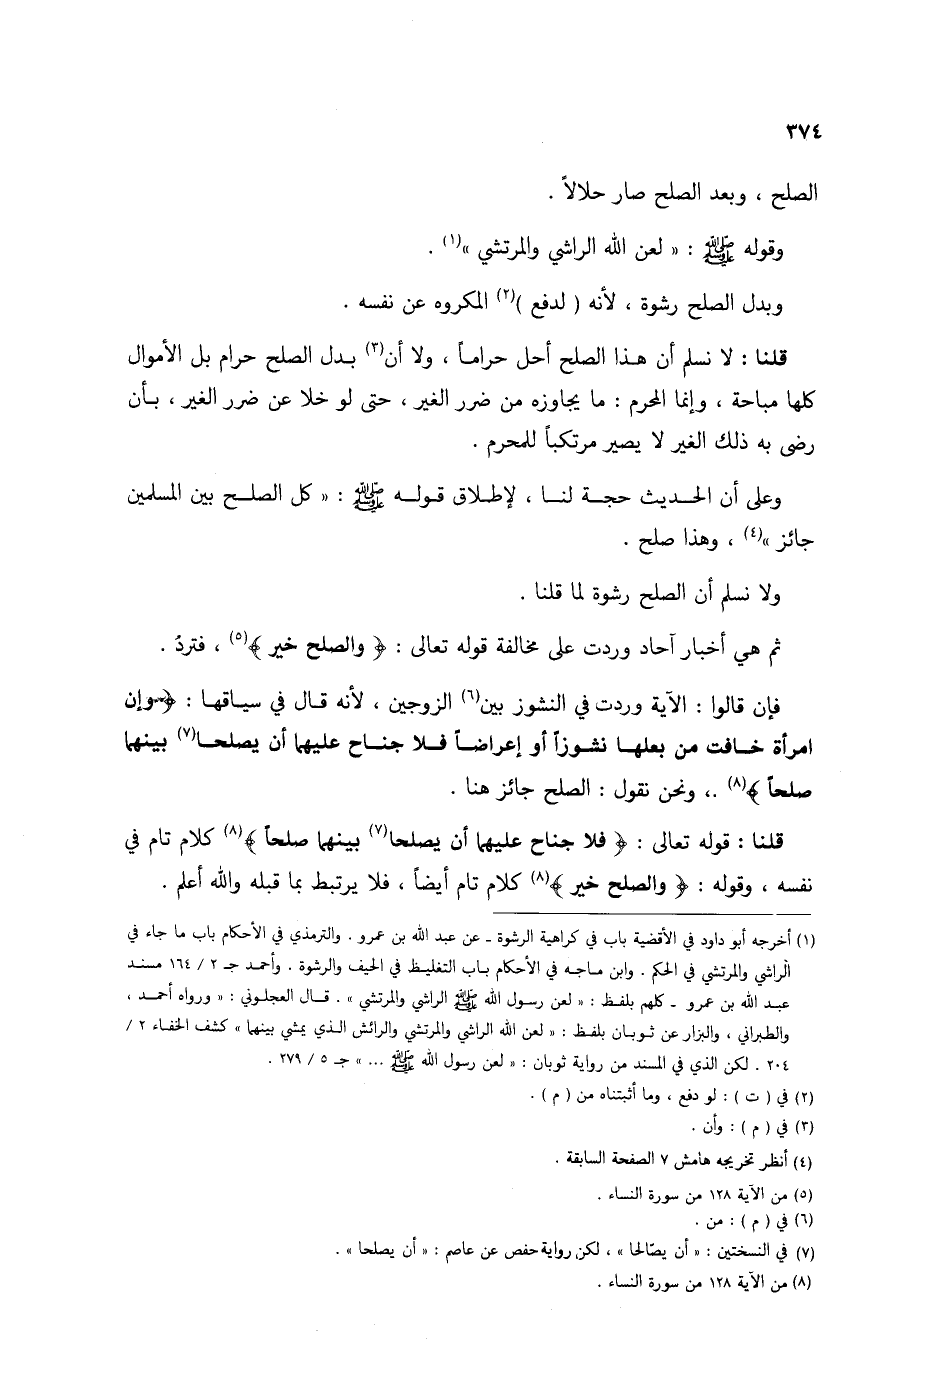 ٣٧٤
الصلح ، وبعد الصلح صار حلالاً .
وقوله ﷺ : « لعن الله الراشي والمرتشي »(١) .
وبدل الصلح رشوة ، لأنه ( لدفع )(٢) المكروه عن نفسه .
قلنا : لا نسلم أن هـذا الصلح أحل حرامـاً ، ولا أن(٣) بـدل الصلح حرام بل الأموال
كلها مباحة ، وإنما المحرم : ما يجاوزه من ضرر الغير ، حتى لو خلا عن ضرر الغير ، بـأن
رضى به ذلك الغير لا يصير مرتكباً للمحرم .
وعلى أن الحـديث حجـة لنـا ، لإطـلاق قـولـه ﷺ : « كل الصلـح بين المسلمين
جائز »(٤) ، وهذا صلح .
ولا نسلم أن الصلح رشوة لما قلنا .
ثم هي أخبار آحاد وردت على مخالفة قوله تعالى : ﴿ والصلح خير ﴾(٥) ، فتردُ .
فإن قالوا : الآية وردت في النشوز بين(٦) الزوجين ، لأنه قـال في سيـاقهـا : ﴿ وإن
امرأة خـافت من بعلهـا نشـوزاً أو إعراضـاً فـلا جنـاح عليهما أن يصلحـا(٧) بينهما
صلحاً ﴾(٨) .، ونحن نقول : الصلح جائز هنا .
قلنا : قوله تعالى : ﴿ فلا جناح عليهما أن يصلحا(٧) بينهما صلحاً ﴾(٨) كلام تام في
نفسه ، وقوله : ﴿ والصلح خير ﴾(٨) كلام تام أيضاً ، فلا يرتبط بما قبله والله أعلم .
(١) أخرجه أبو داود في الأقضية باب في كراهية الرشوة ـ عن عبد الله بن عمرو . والترمذي في الأحكام باب ما جاء في
الراشي والمرتشي في الحكم . وابن مـاجـه في الأحكام بـاب التغليـظ في الحيف والرشوة . وأحمـد جـ ٢ / ١٦٤ مسنـد
عبـد الله بن عمرو ـ كلهم بلفـظ : « لعن رسول الله ﷺ الراشي والمرتشي » . قـال العجلوني : « ورواه أحمـد ،
والطبراني ، والبزار عن ثوبـان بلفـظ : « لعن الله الراشي والمرتشي والرائش الـذي يمشي بينهما » كشف الخفـاء ٢ /
٢٠٤ . لكن الذي في المسند من رواية ثوبان : « لعن رسول الله ﷺ ... » جـ ٥ / ٢٧٩ .
(٢) في ( ت ) : لو دفع ، وما أثبتناه من ( م ) .
(٣) في ( م ) : وأن .
(٤) أنظر تخريجه هامش ٧ الصفحة السابقة .
(٥) من الآية ١٢٨ من سورة النساء .
(٦) في ( م ) : من .
(٧) في النسختين : « أن يصّالحا » ، لكن رواية حفص عن عاصم : « أن يصلحا » .
(٨) من الآية ١٢٨ من سورة النساء .